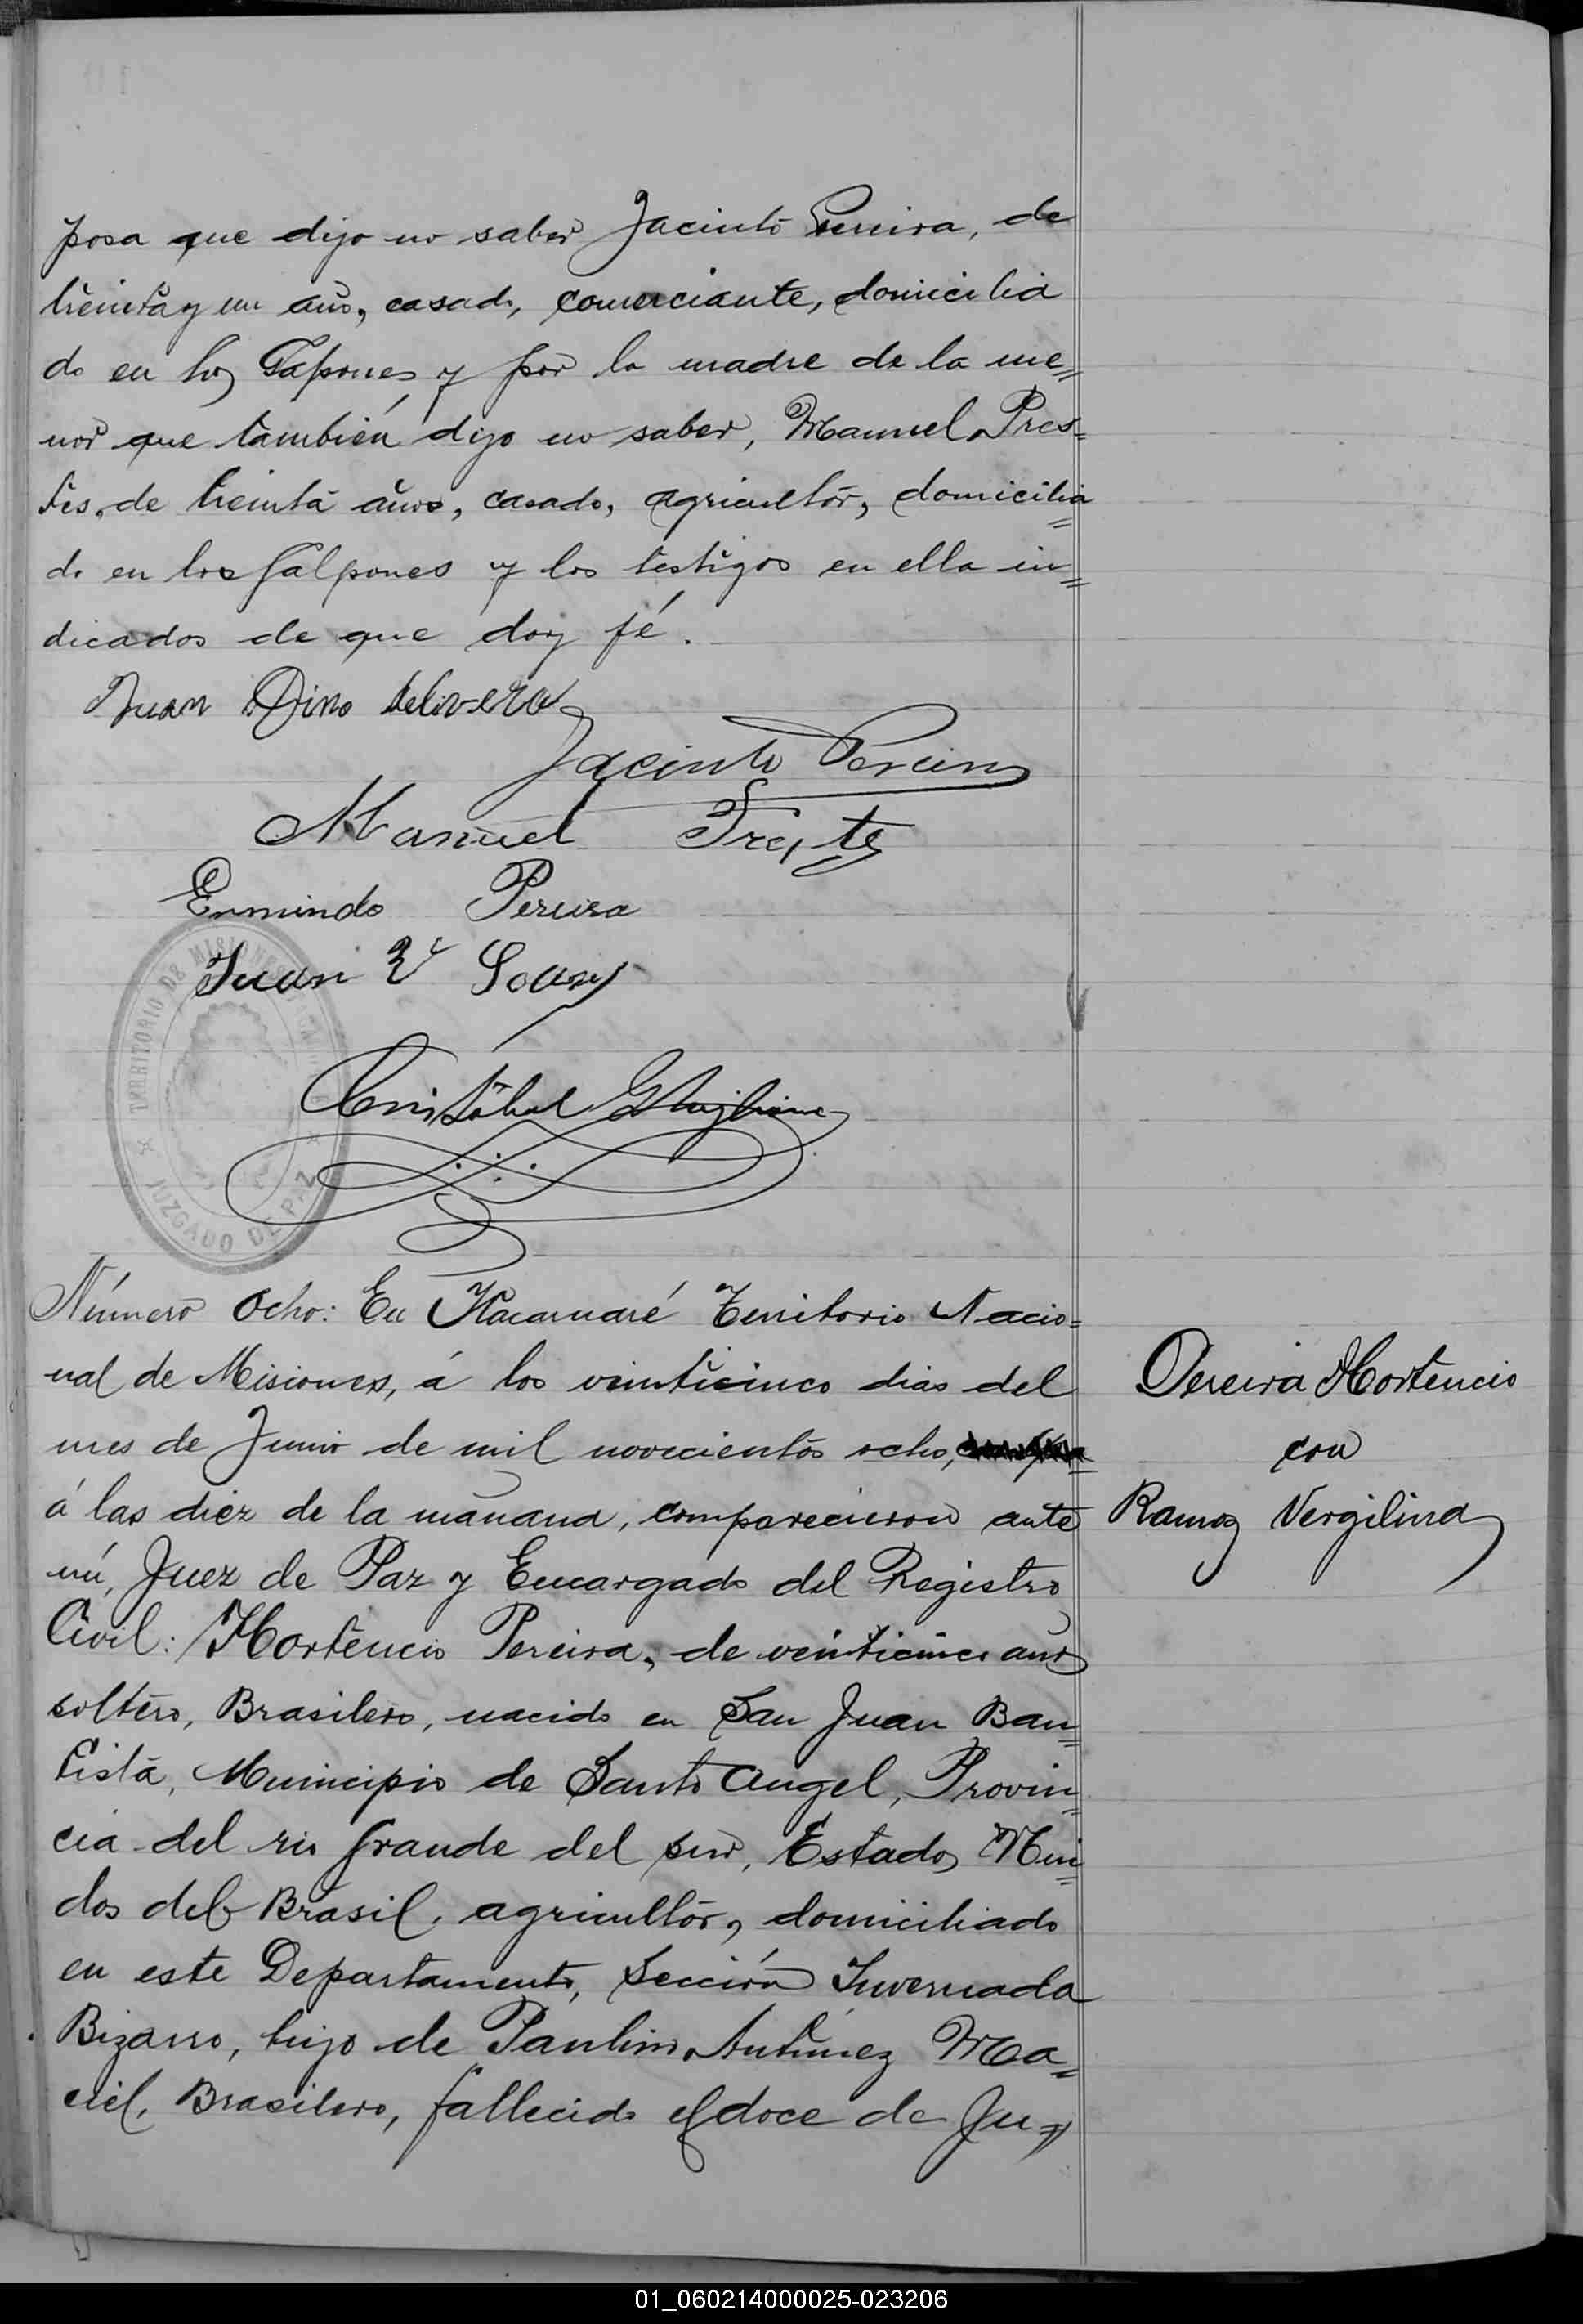 posa que dijo no saber Jacinto Pereira, de
treinta y un año, casado, comerciante, domicilia
do en los Galpones y por la madre de la me=
nor que también dijo no saber, Manuel Pres=
tes, de treinta años, casado, agricultor, domicilia=
do en los Galpones y los testigos en ella in=
dicados de que doy fé.
Juan Dino
Jacinto Pereira
Manuel Preste
Ermindo Pereira
Juan
TERRITORIO DE MISIONES
JUZGADO DE PAZ
Cristóbal
Número Ocho: En Itacaruaré Territorio Nacio=
nal de Misiones, á los veinticinco dias del
mes de Junio de mil novecientos ocho,
á las diez de la mañana, comparecieron ante
mí, Juez de Paz y Encargado del Registro
Civil: Hortencio Pereira, de veinticinco años
soltero, Brasilero, nacido en San Juan Bau=
tista, Municipio de Santo Angel, Provin=
cia del rio Grande del sur, Estados Uni=
dos del Brasil, agricultor, domiciliado
en este Departamento, Sección Invernada
Bizarro, hijo de Paulino Antunez Ma=
ciel, Brasilero, fallecido el doce de Ju=
Pereira Hortencio
con
Ramos Vergilina
01_060214000025-023206